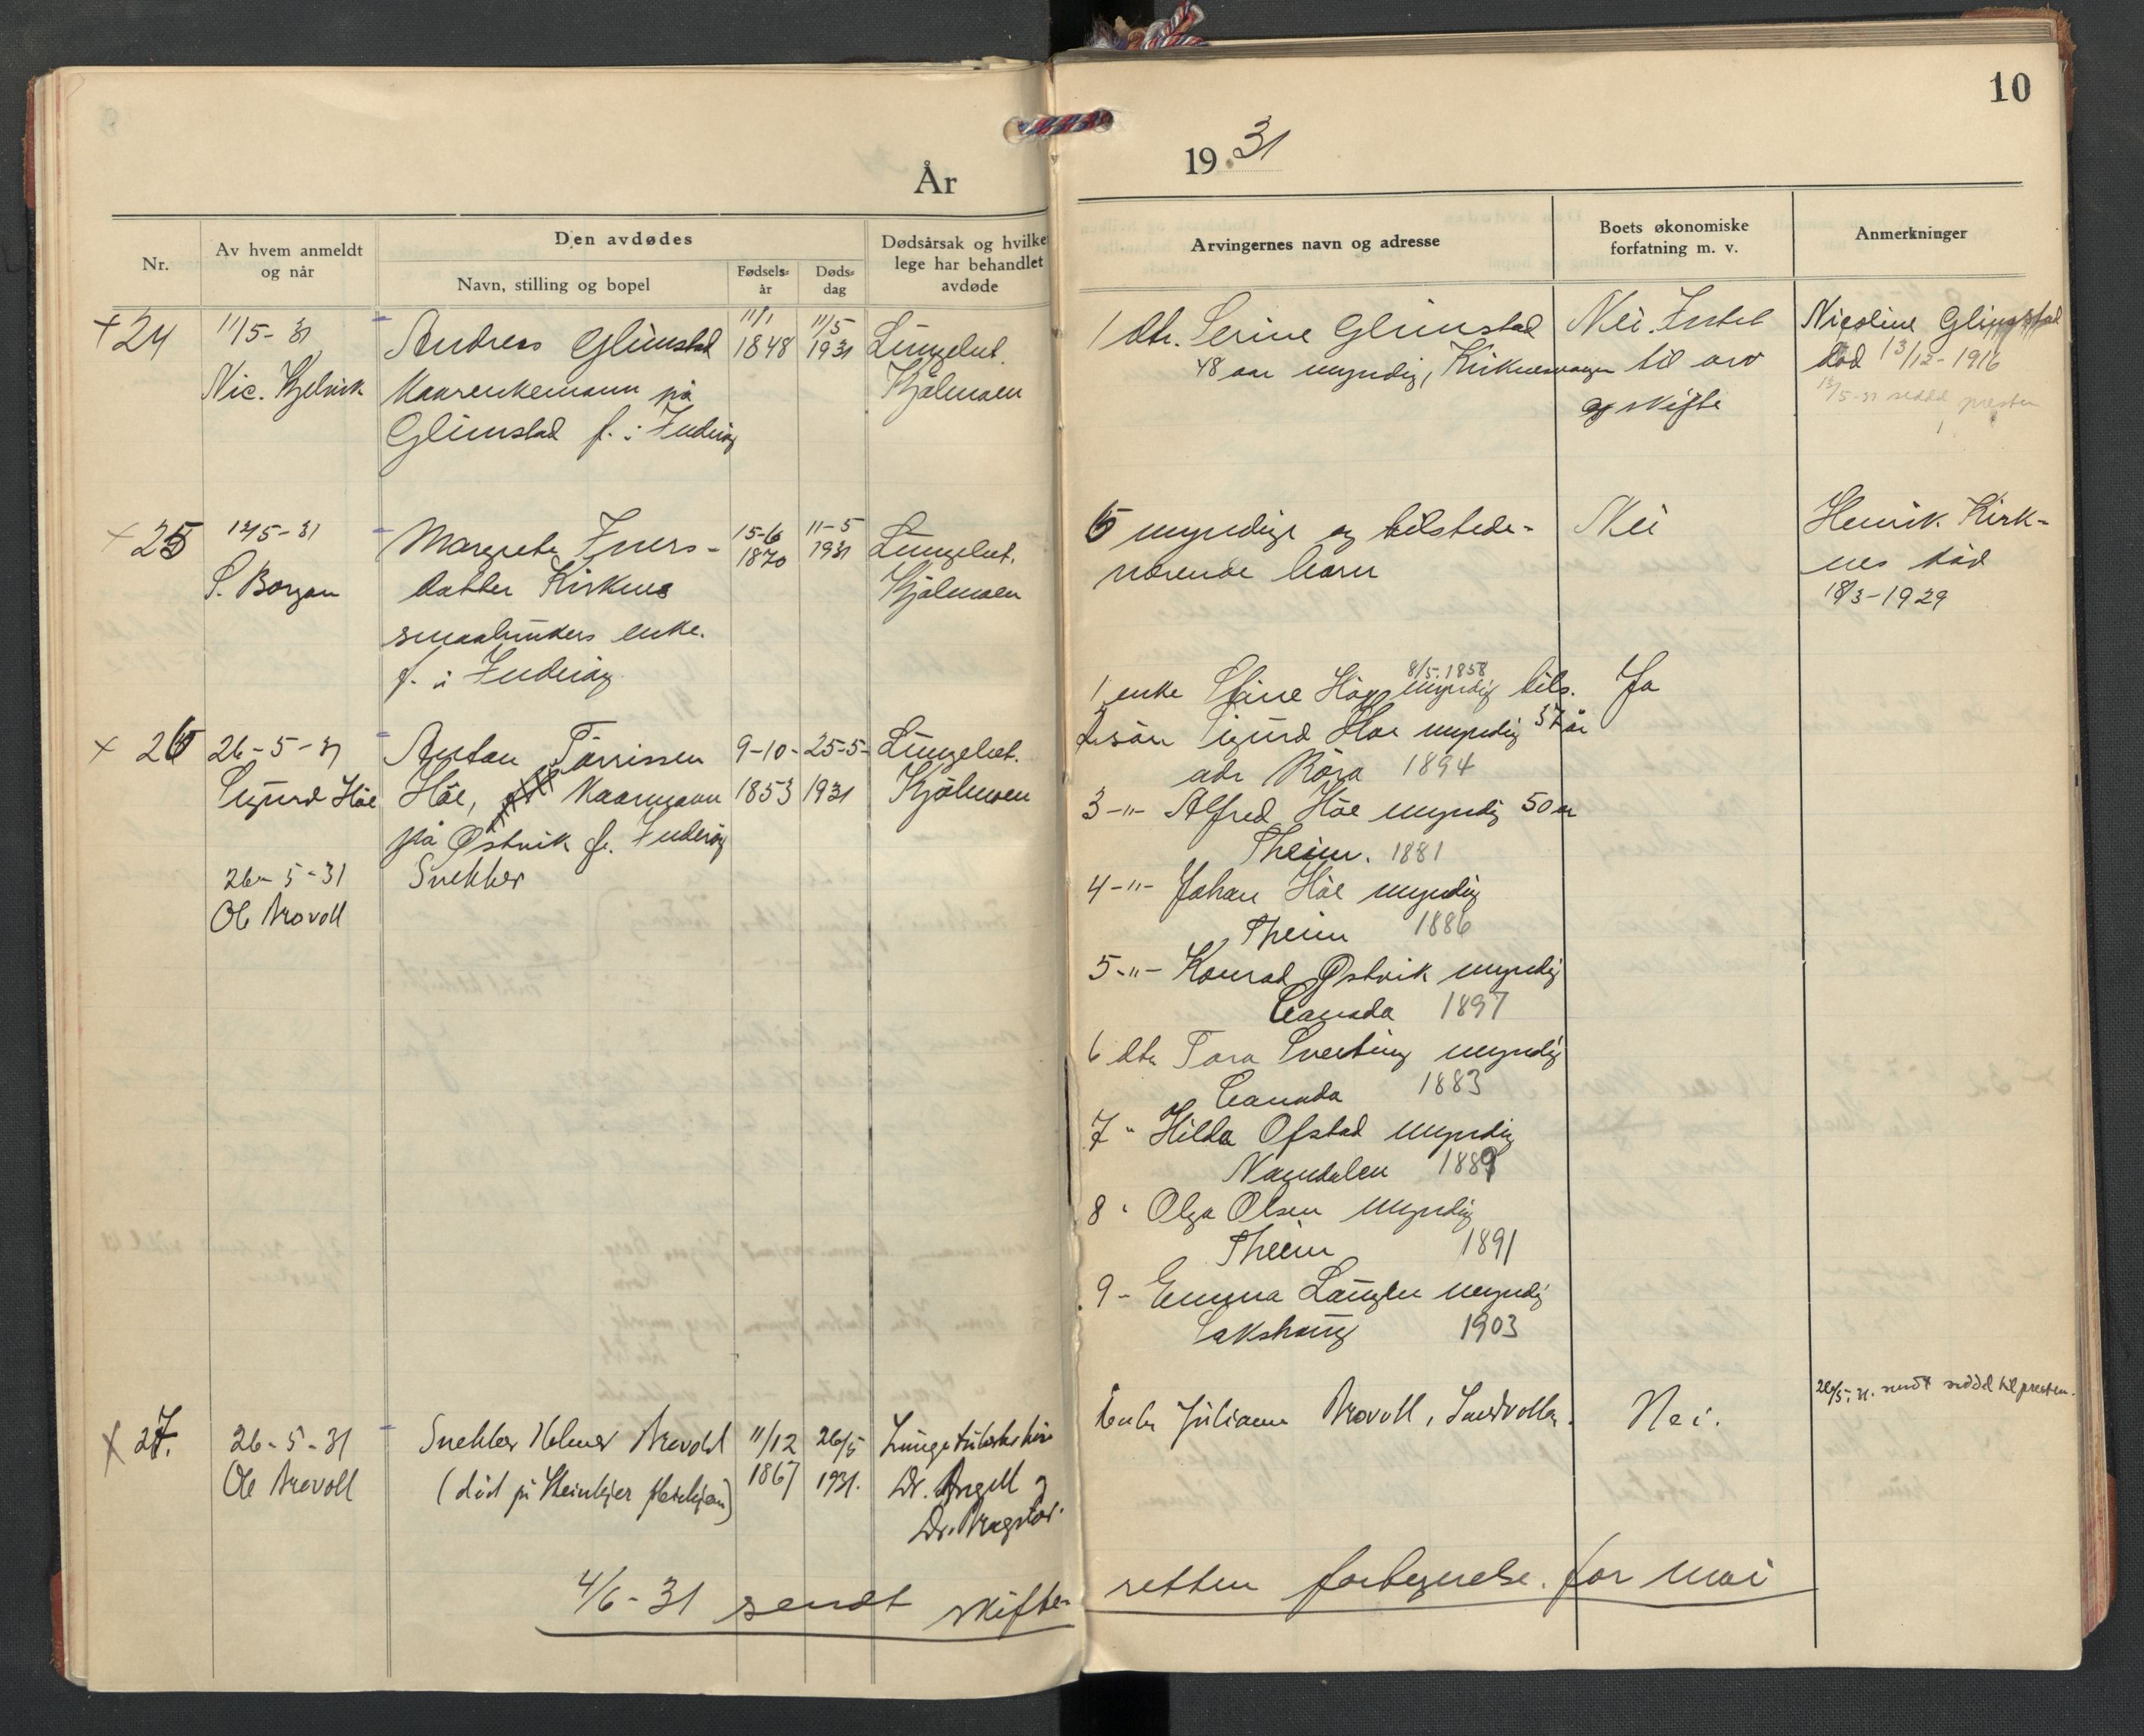 10
År 1931
Nr.
Av hvem anmeldt og når
Den avdødes
Navn, stilling og bopel
Fødsels-år
Døds-dag
Dødsårsak og hvilke
lege har behandlet
avdøde
Arvingernes navn og adresse
Boets økonomiske
forfatning m. v.
Anmerkninger
+24
11/5-31
Nic. Hjelvik
Andreas Glimstad
Kaarenkemann på
Glimstad f. i Inderöy
11/1
1848
11/5
1931
Lungebet.
Hjälmoen
1 dtr. Serine Glimstad
48 aar myndig, Kirknesvaagen
Nei. Intet
til arv
og skifte
Nicoline Glimstad
död 13/12-1916
12/5-31 seddel presten
+25
12/5-31
S. Borgan
Margrete Ivers-
datter Kirknes
smaabrukers enke.
f. i Inderöy
15-6
1870
11-5
1931
Lungebet.
Hjälmoen
5 myndige og tilstede-
værende barn
Nei
Henrik Kirk-
nes död
18/3-1929
x 26
26-5-31
Sigurd Höe
Anton Tørrissen
Höe, Kaarmann
på Østvik f. Inderöy
Snekker
9-10-
1853
25-5-
1931
Lungebet.
Hjälmoen
26-5-31
Ole Brovoll
1 enke Stine Höe 8/5.1858 myndig tils.
2 sön Sigurd Höe myndig 37 år
adr Röra 1894
3-"- Alfred Höe myndig 50 år
Theim. 1881
4-"- Johan Höe myndig
Theim 1886
5-"- Konrad Østvik myndig
Canada 1897
6 dtr Tora Sverting myndig
Canada 1883
7 " Hilda Ofstad myndig
Namdalen 1889
8 " Olga Olsen myndig
Theim 1891
9 - Emma Langlen myndig
Sakshaug 1903
Ja
x 27.
26-5-31
Ole Brovoll
Snekker Helmer Brovoll
(död på Steinkjer sykehjem)
11/12
1867
26/5
1931.
Lungetuberkulose
Dr. Angell og
Dr. Bragstad.
Enke Juliane Brovoll, Sandvollan.
Nei.
26/5.31. sendt seddel til presten.
4/6-31 sendt skifte-
retten fortegnelse. for mai